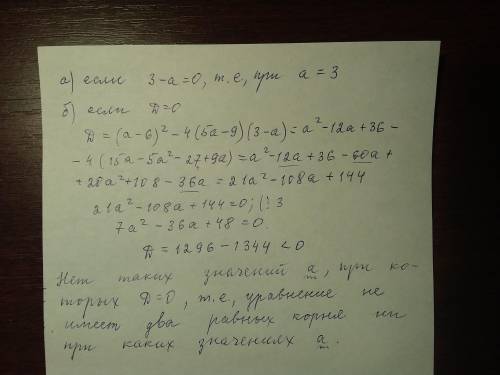 а) если 3-а=0, т.е, при а = 3
б) если D=0
D = (а-6)² - 4(5а-9)(3-а) = а²-12а+36-
- 4(15а-5а²-27+9а) = а²-12а+36-60а+
+20а²+108-36а = 21а²-108а+144
21а²-108а+144=0; (:3
7а²-36а+48=0.
D = 1296-1344 < 0
Нет таких значений а, при ко-
торых D=0, т.е, уравнение не
имеет два равных корня ни
при каких значениях а.